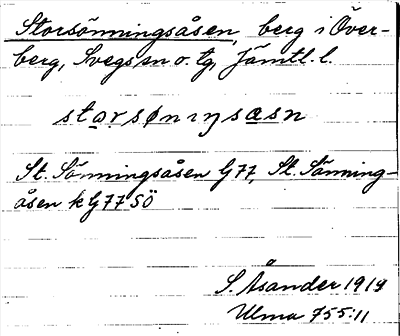 Storsönningsåsen, berg i Över-
berg, Svegs sn o. tg, Jämtl. l.
storsøniŋsasn
St. Sönningsåsen G77, St. Sönning-
åsen k G77 SÖ
S. Åsander 1919
Ulma 755:11